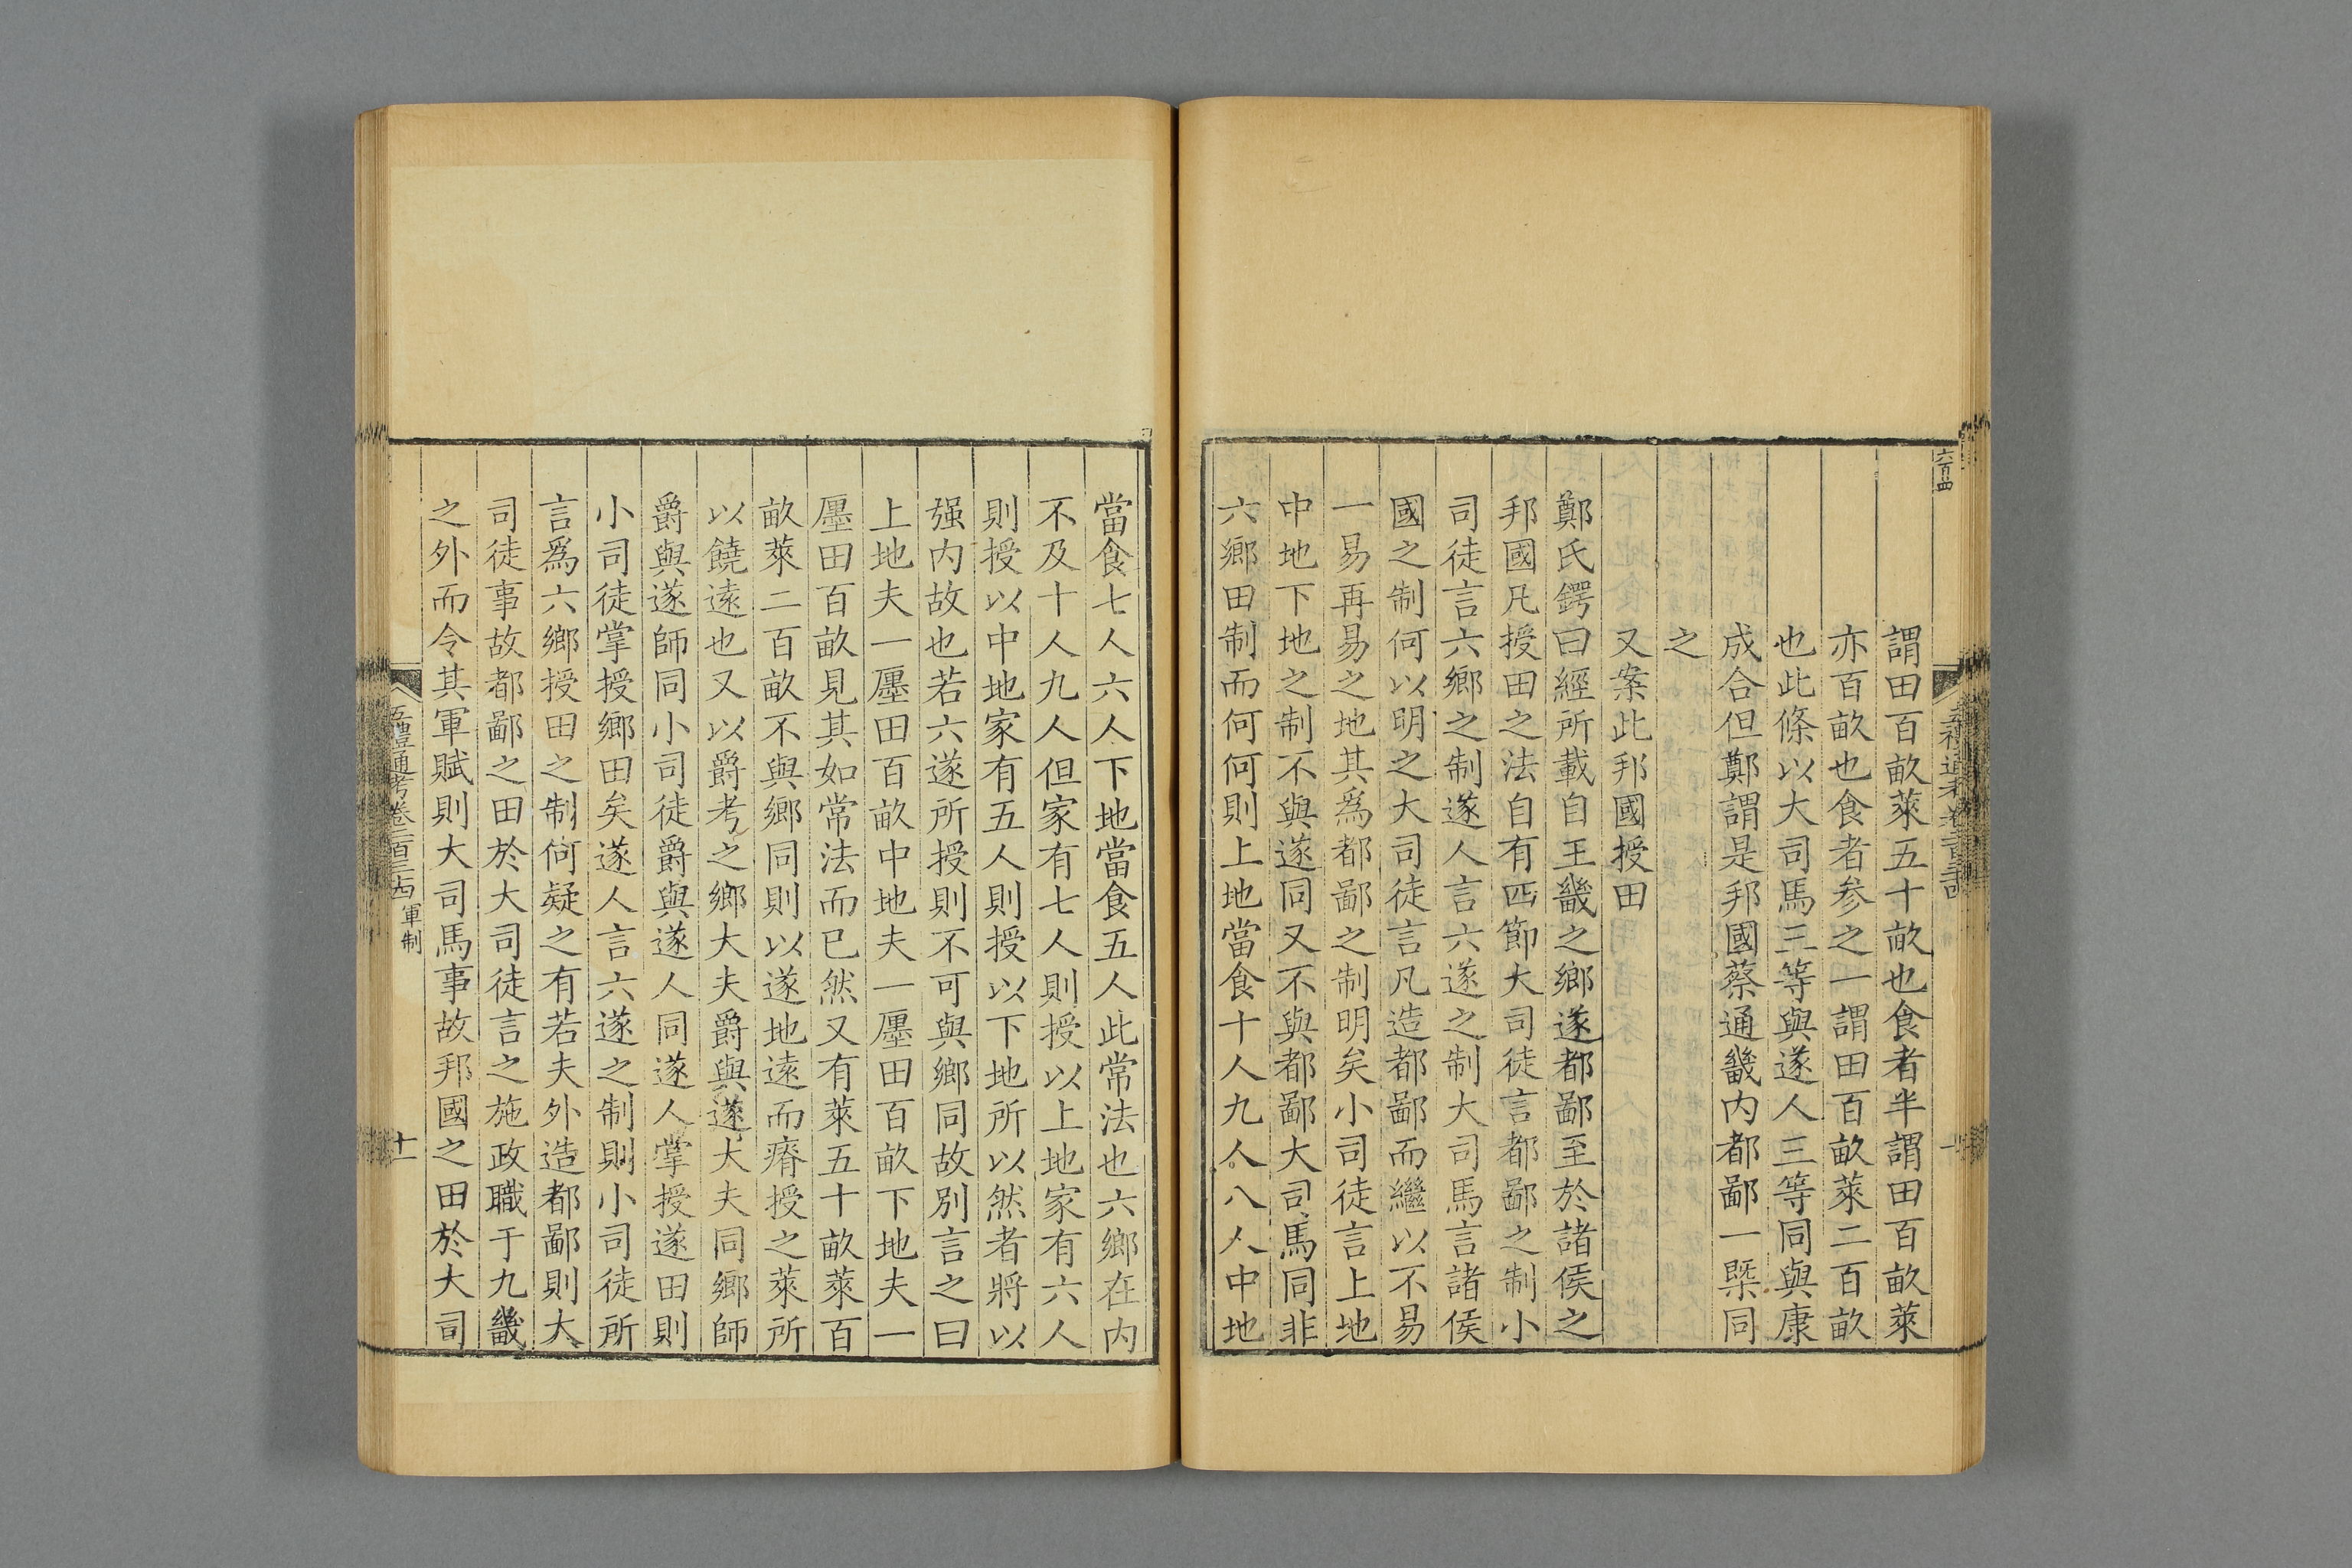 謂田百畝萊五十畝也食者半謂田百畝萊
亦百畝也食者参之一謂田百畝萊二百畝
也此條以大司馬三等與遂人三等同與康
成合但鄭謂是邦國蔡通畿内都鄙一槩同
之
又案此邦國授田
鄭氏鍔曰經所載自王畿之鄉遂都鄙至於諸侯之
邦國凡授田之法自有四節大司徒言都鄙之制小
司徒言六鄉之制遂人言六遂之制大司馬言諸侯
國之制何以明之大司徒言凡造都鄙而繼以不易
一易再易之地其爲都鄙之制明矣小司徒言上地
中地下地之制不與遂同又不與都鄙大司馬同非
六鄉田制而何何則上地當食十人九人八人中地
當食七人六人下地當食五人此常法也六鄉在内
不及十人九人但家有七人則授以上地家有六人
則授以中地家有五人則授以下地所以然者將以
强内故也若六遂所授則不可與鄉同故別言之曰
上地夫一廛田百畝中地夫一廛田百畝下地夫一
廛田百畝見其如常法而已然又有萊五十畝萊百
畝萊二百畝不與鄉同則以遂地遠而瘠授之萊所
以饒遠也又以爵考之鄉大夫爵與遂大夫同鄉師
爵與遂師同小司徒爵與遂人同遂人掌授遂田則
小司徒掌授鄉田矣遂人言六遂之制則小司徒所
言爲六鄉授田之制何疑之有若夫外造都鄙則大
司徒事故都鄙之田於大司徒言之施政職于九畿
之外而令其軍賦則大司馬事故邦國之田於大司
五禮通考卷二百三十四 軍制
十一